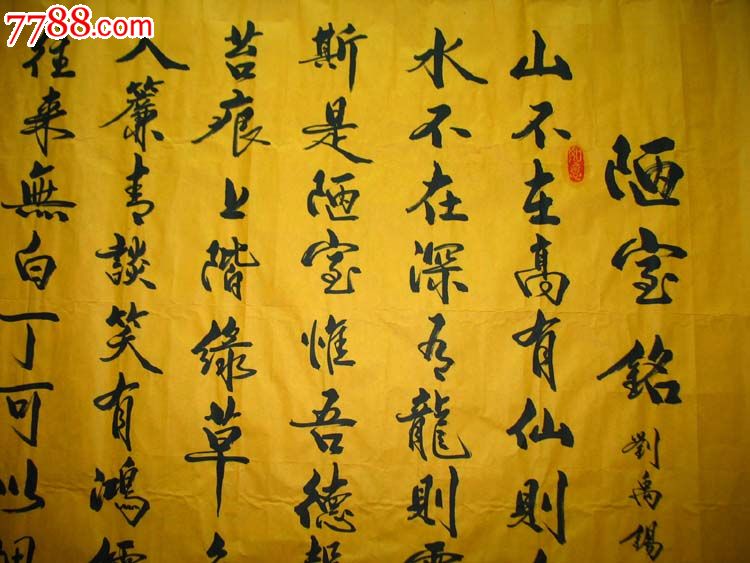 7788.com
陋室銘
劉禹錫
如意
山不在高有仙則
水不在深有龍則
斯是陋室惟吾德
苔痕上階綠草
入簾青談笑有鴻
往来無白丁可以